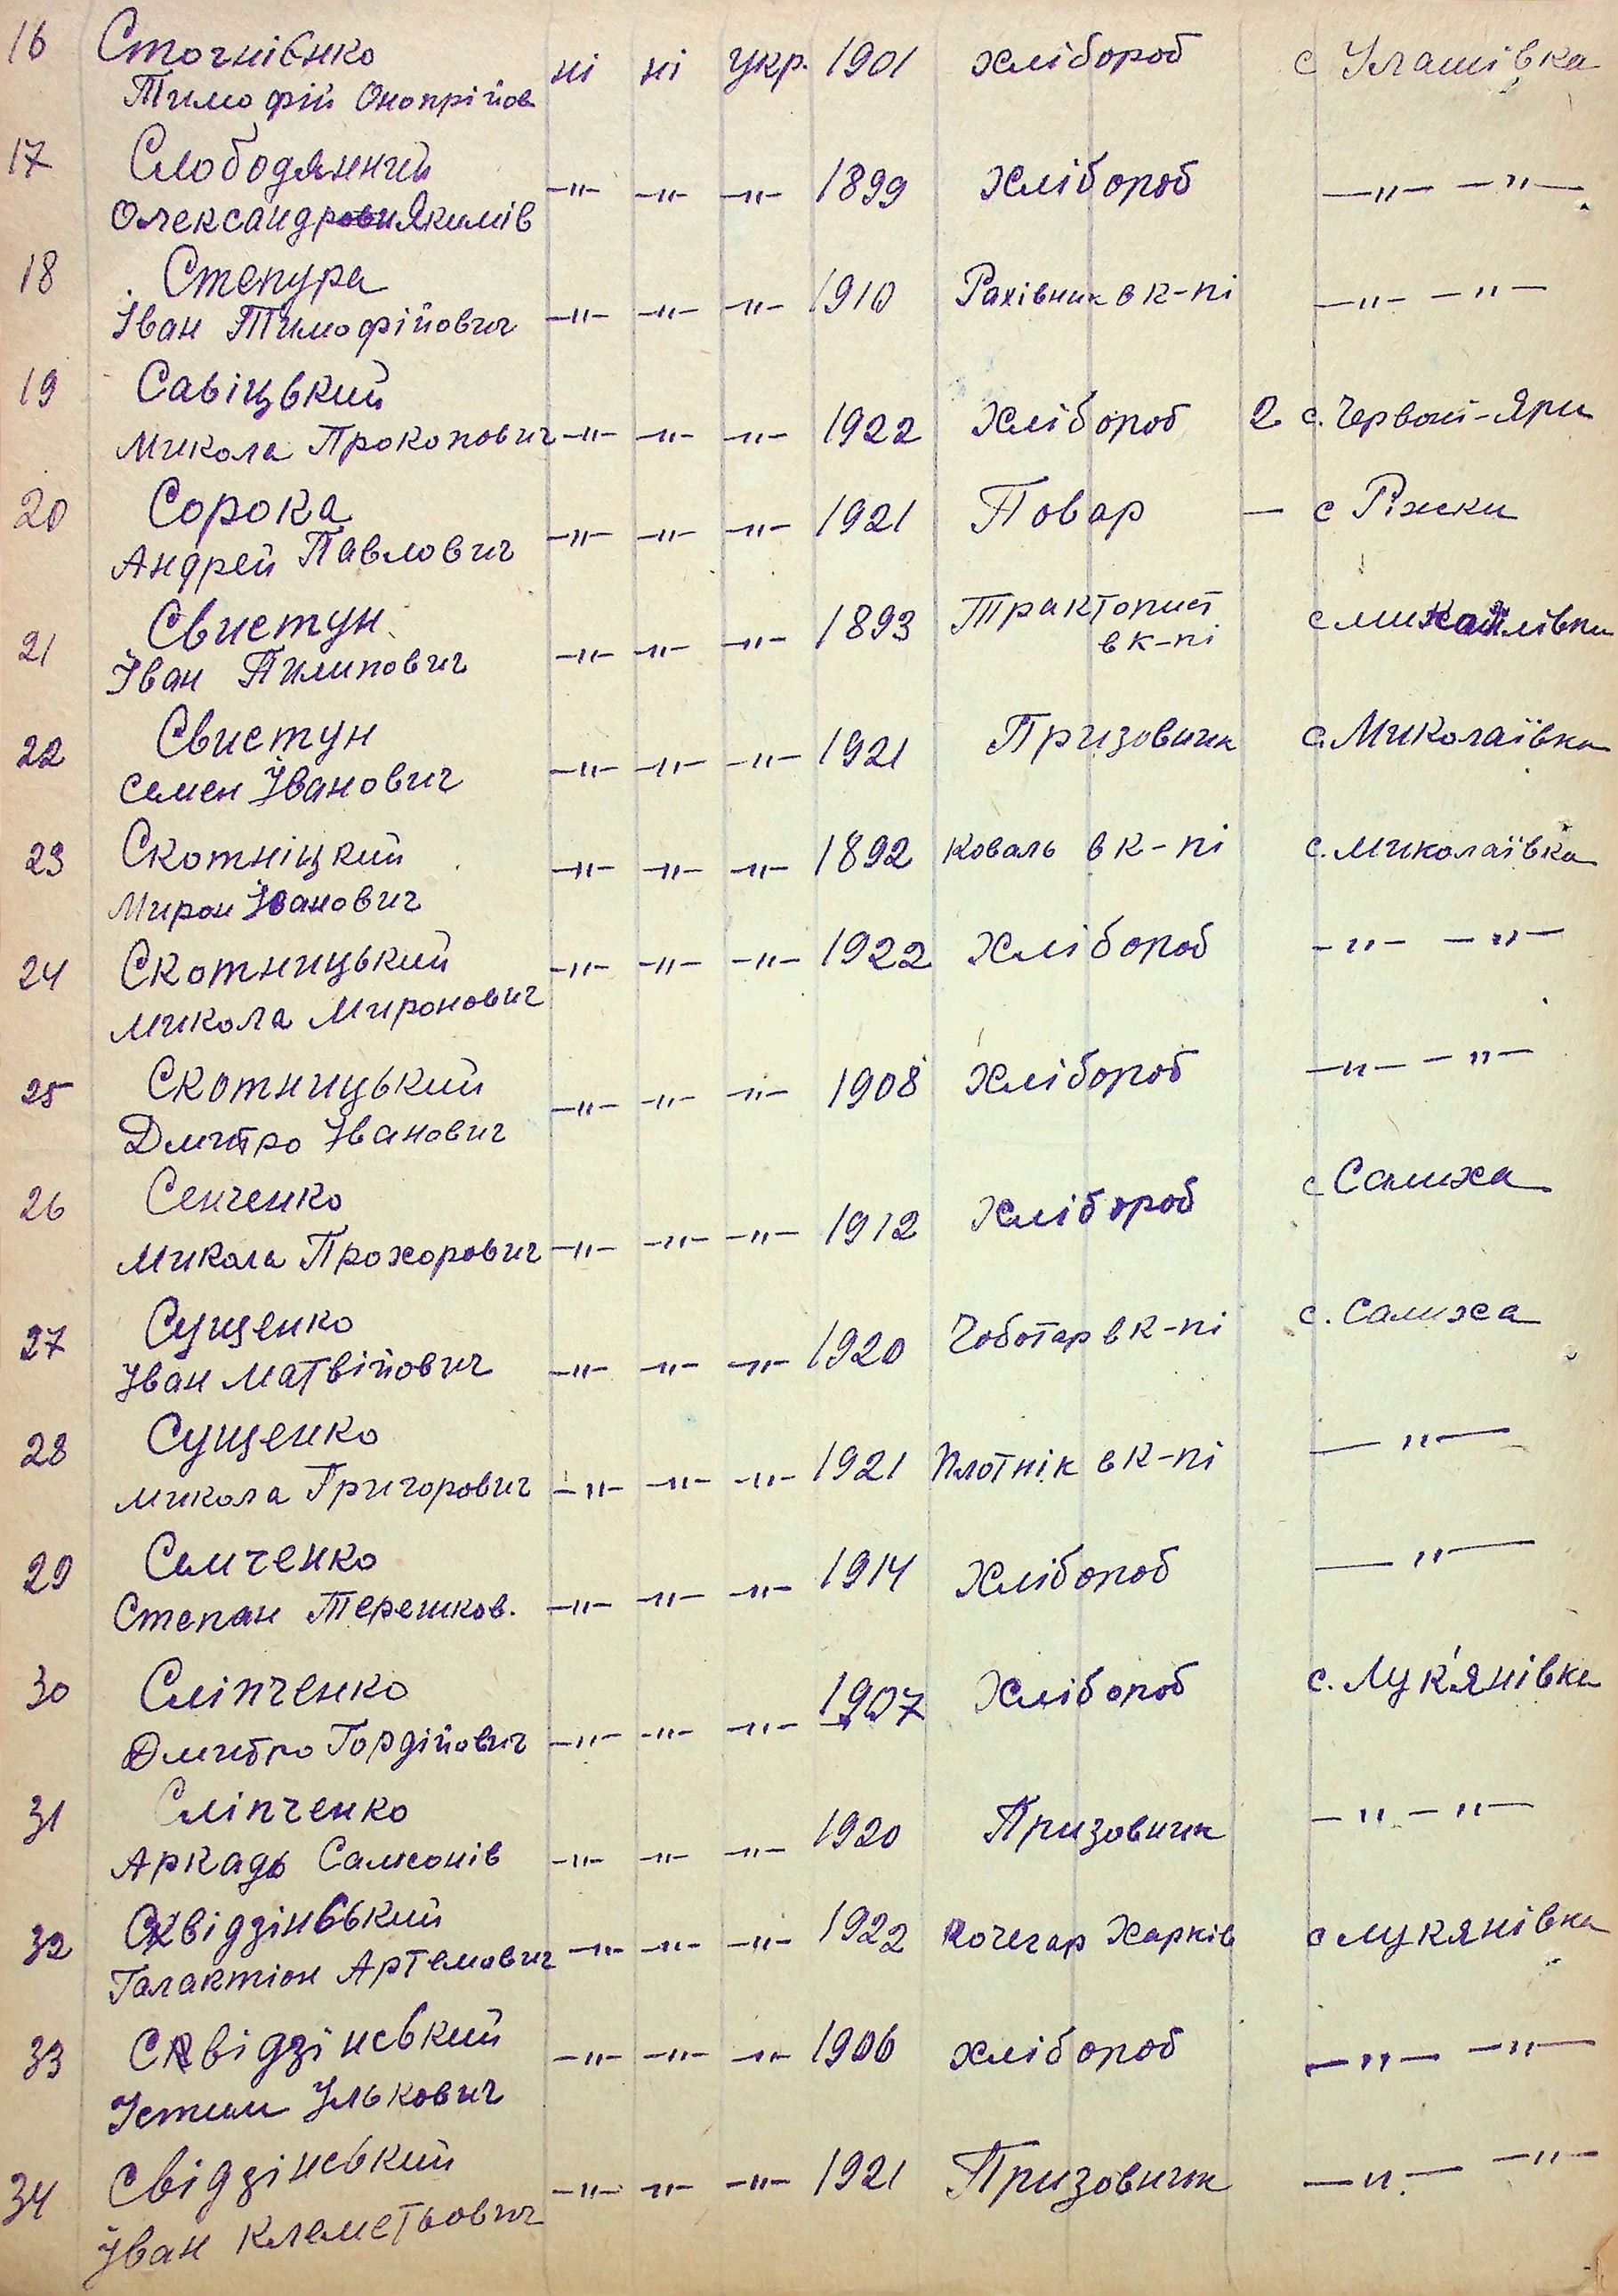 16 Стогнієнко
Тимофій Онопрійов ні ні укр. 1901 хлібороб с Улашівка
17 Слободяний
Олександр Якимів —"— —"— —"— 1899 Хлібороб —"— —"—
18 Степура
Іван Тимофійович —"— —"— —"— 1910 Рахівник в к-пі —"— —"—
19 Савіцький
Микола Прокопович —"— —"— —"— 1922 Хлібороб 2 с. Червоні-Яри
20 Сорока
Андрей Павлович —"— —"— —"— 1921 Повар — с Ріжки
21 Свистун
Іван Пилипович —"— —"— —"— 1893 Тракторист
в к-пі
22 Свистун
Семен Іванович —"— —"— —"— 1921 Призовник с. Миколаївка
23 Скотніцкий
Мирон Іванович —"— —"— —"— 1892 Коваль в к-пі с. Миколаївка
24 Скотницький
Микола Миронович —"— —"— —"— 1922 Хлібороб —"— —"—
25 Скотницький
Дмитро Іванович —"— —"— —"— 1908 Хлібороб —"— —"—
26 Сенченко
Микола Прохорович —"— —"— —"— 1912 Хлібороб с Салиха
27 Сущенко
Іван Матвійович —"— —"— —"— 1920 Чоботар в к-пі с. Салиха
28 Сущенко
Микола Григорович —"— —"— —"— 1921 Плотнік в к-пі —"—
29 Семченко
Степан Терешков. —"— —"— —"— 1914 Хлібороб —"—
30 Сліпченко
Дмитро Гордійович —"— —"— —"— 1907 Хлібороб с. Лук'янівка
31 Сліпченко
Аркадь Самсонів —"— —"— —"— 1920 Призовник —"— —"—
32 Свідзінський
Галактіон Артемович —"— —"— —"— 1922 Кочегар Харків с Лукянівка
33 Свідзінський
Устим Улькович —"— —"— —"— 1906 хлібороб —"— —"—
34 Свідзінський
Іван Клеметьович —"— —"— —"— 1921 Призовник —"— —"—